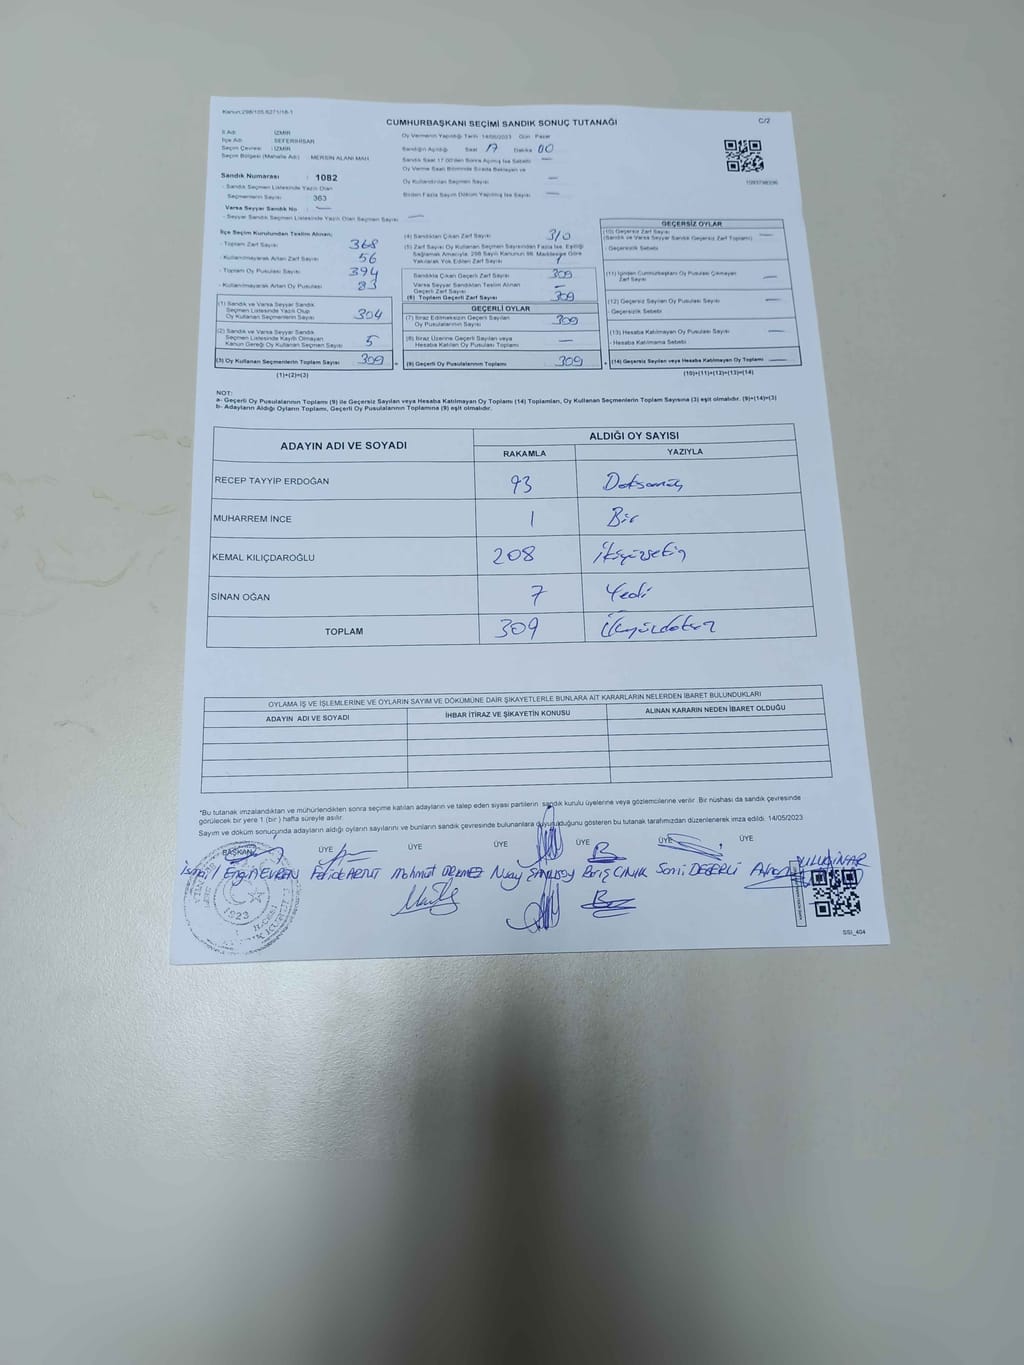 Kanun:298/105.6271/18-1
CUMHURBAŞKANI SEÇİMİ SANDIK SONUÇ TUTANAĞI
C/2
İl Adı : İZMİR
İlçe Adı : SEFERİHİSAR
Seçim Çevresi : İZMİR
Seçim Bölgesi (Mahalle Adı) : MERSİN ALANI MAH.
Sandık Numarası : 1082
- Sandık Seçmen Listesinde Yazılı Olan
Seçmenlerin Sayısı : 363
Varsa Seyyar Sandık No : —
- Seyyar Sandık Seçmen Listesinde Yazılı Olan Seçmen Sayısı : —
Oy Vermenin Yapıldığı Tarih : 14/05/2023 Gün : Pazar
Sandığın Açıldığı Saat 17 Dakika 00
Sandık Saat 17.00'den Sonra Açılmış İse Sebebi : —
Oy Verme Saati Bitiminde Sırada Bekleyen ve
Oy Kullandırılan Seçmen Sayısı : —
Birden Fazla Sayım Döküm Yapılmış İse Sayısı : —
İlçe Seçim Kurulundan Teslim Alınan;
- Toplam Zarf Sayısı : 368
- Kullanılmayarak Artan Zarf Sayısı : 56
- Toplam Oy Pusulası Sayısı : 394
- Kullanılmayarak Artan Oy Pusulası : 83
(1) Sandık ve Varsa Seyyar Sandık
Seçmen Listesinde Yazılı Olup
Oy Kullanan Seçmenlerin Sayısı : 304
(2) Sandık ve Varsa Seyyar Sandık
Seçmen Listesinde Kayıtlı Olmayan
Kanun Gereği Oy Kullanan Seçmen Sayısı : 5
(3) Oy Kullanan Seçmenlerin Toplam Sayısı : 309
(1)+(2)=(3)
(4) Sandıktan Çıkan Zarf Sayısı : 310
(5) Zarf Sayısı Oy Kullanan Seçmen Sayısından Fazla İse, Eşitliği
Sağlamak Amacıyla, 298 Sayılı Kanunun 98. Maddesine Göre
Yakılarak Yok Edilen Zarf Sayısı : 1
Sandıkta Çıkan Geçerli Zarf Sayısı : 309
Varsa Seyyar Sandıktan Teslim Alınan
Geçerli Zarf Sayısı : —
(6) Toplam Geçerli Zarf Sayısı : 309
GEÇERLİ OYLAR
(7) İtiraz Edilmeksizin Geçerli Sayılan
Oy Pusulalarının Sayısı : 309
(8) İtiraz Üzerine Geçerli Sayılan veya
Hesaba Katılan Oy Pusulası Toplamı : —
(9) Geçerli Oy Pusulalarının Toplamı : 309
GEÇERSİZ OYLAR
(10) Geçersiz Zarf Sayısı
(Sandık ve Varsa Seyyar Sandık Geçersiz Zarf Toplamı) : —
- Geçersizlik Sebebi :
(11) İçinden Cumhurbaşkanı Oy Pusulası Çıkmayan
Zarf Sayısı : —
(12) Geçersiz Sayılan Oy Pusulası Sayısı : —
- Geçersizlik Sebebi :
(13) Hesaba Katılmayan Oy Pusulası Sayısı : —
- Hesaba Katılmama Sebebi :
(14) Geçersiz Sayılan veya Hesaba Katılmayan Oy Toplamı : —
(10)+(11)+(12)+(13)=(14)
NOT:
a- Geçerli Oy Pusulalarının Toplamı (9) ile Geçersiz Sayılan veya Hesaba Katılmayan Oy Toplamı (14) Toplamları, Oy Kullanan Seçmenlerin Toplam Sayısına (3) eşit olmalıdır. (9)+(14)=(3)
b- Adayların Aldığı Oyların Toplamı, Geçerli Oy Pusulalarının Toplamına (9) eşit olmalıdır.
ADAYIN ADI VE SOYADI
ALDIĞI OY SAYISI
RAKAMLA YAZIYLA
RECEP TAYYİP ERDOĞAN 93 Doksanüç
MUHARREM İNCE 1 Bir
KEMAL KILIÇDAROĞLU 208 İkiyüzsekiz
SİNAN OĞAN 7 Yedi
TOPLAM 309 Üçyüzdokuz
OYLAMA İŞ VE İŞLEMLERİNE VE OYLARIN SAYIM VE DÖKÜMÜNE DAİR ŞİKAYETLERLE BUNLARA AİT KARARLARIN NELERDEN İBARET BULUNDUKLARI
ADAYIN ADI VE SOYADI İHBAR İTİRAZ VE ŞİKAYETİN KONUSU ALINAN KARARIN NEDEN İBARET OLDUĞU
*Bu tutanak imzalandıktan ve mühürlendikten sonra seçime katılan adayların ve talep eden siyasi partilerin sandık kurulu üyelerine veya gözlemcilerine verilir. Bir nüshası da sandık çevresinde
görülecek bir yere 1 (bir) hafta süreyle asılır.
Sayım ve döküm sonucunda adayların aldığı oyların sayılarını ve bunların sandık çevresinde bulunanlara duyurulduğunu gösteren bu tutanak tarafımızdan düzenlenerek imza edildi. 14/05/2023
BAŞKAN ÜYE ÜYE ÜYE ÜYE ÜYE ÜYE
İsmail Engin EVREN Mahmut Barış Sami DEĞERLİ
1923
SSI_404